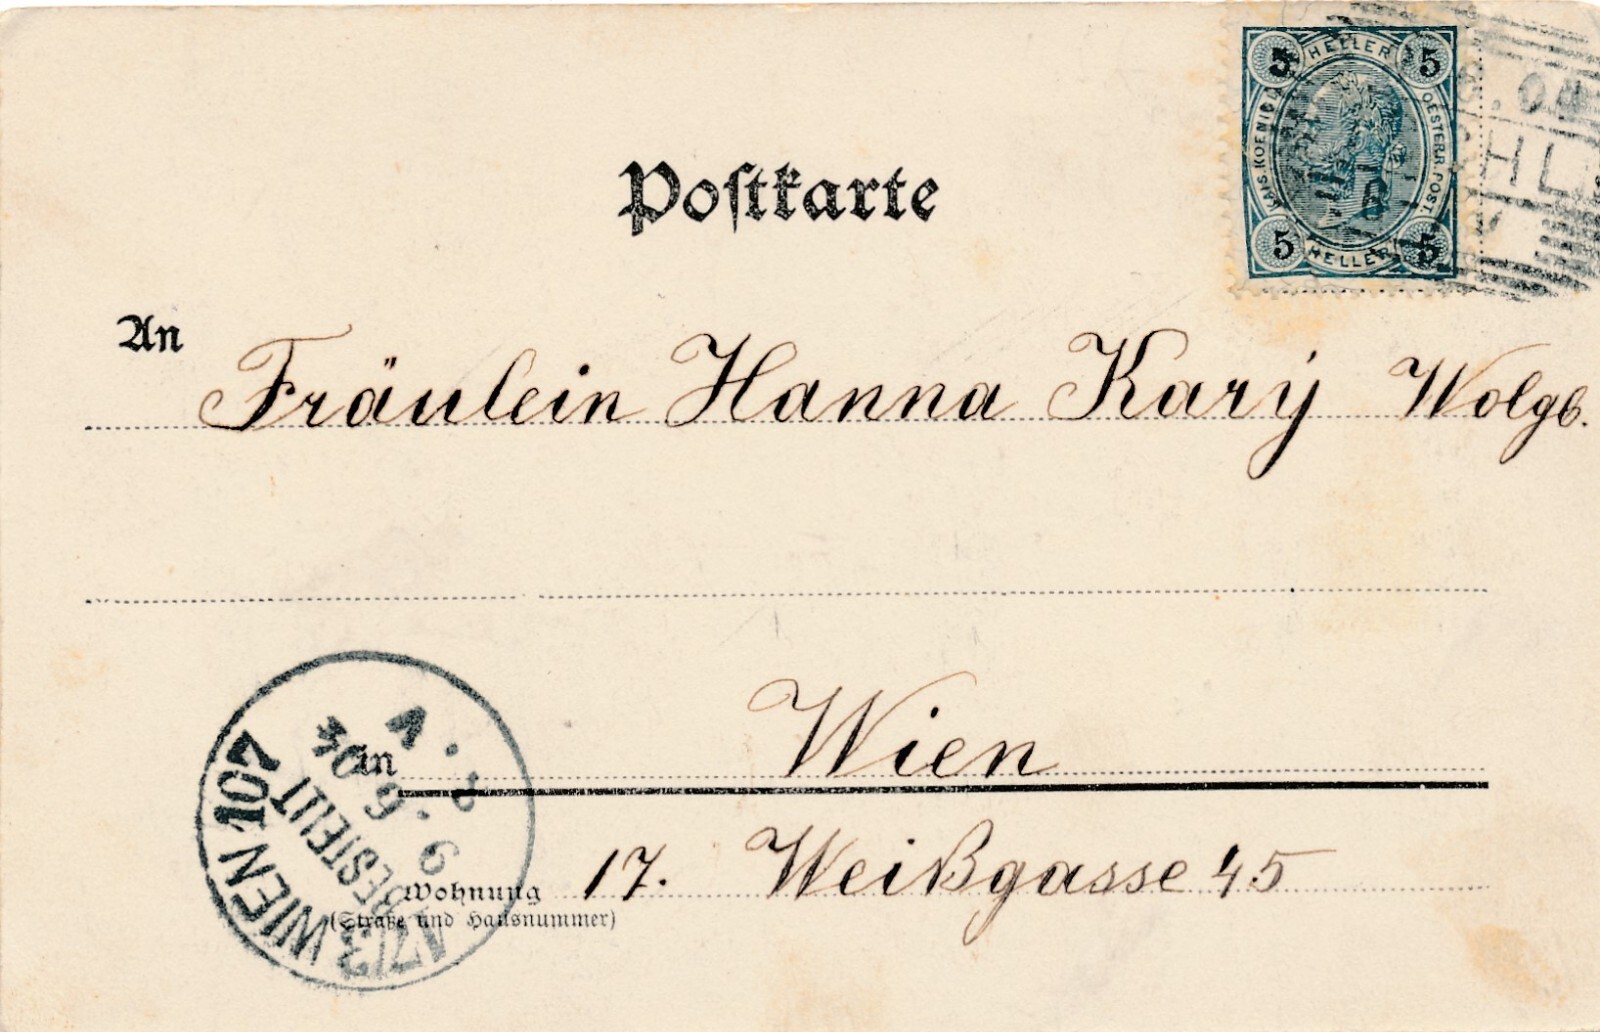 Postkarte
HELLER
5 5
KAIS. KOENIGL. OESTERR. POST.
5 5
HELLER
An Fräulein Hanna Kary Wolgb.
an Wien
Wohnung 17. Weißgasse 45
(Straße und Hausnummer)
17/3 WIEN 107
BESTELLT
9.6.04
V